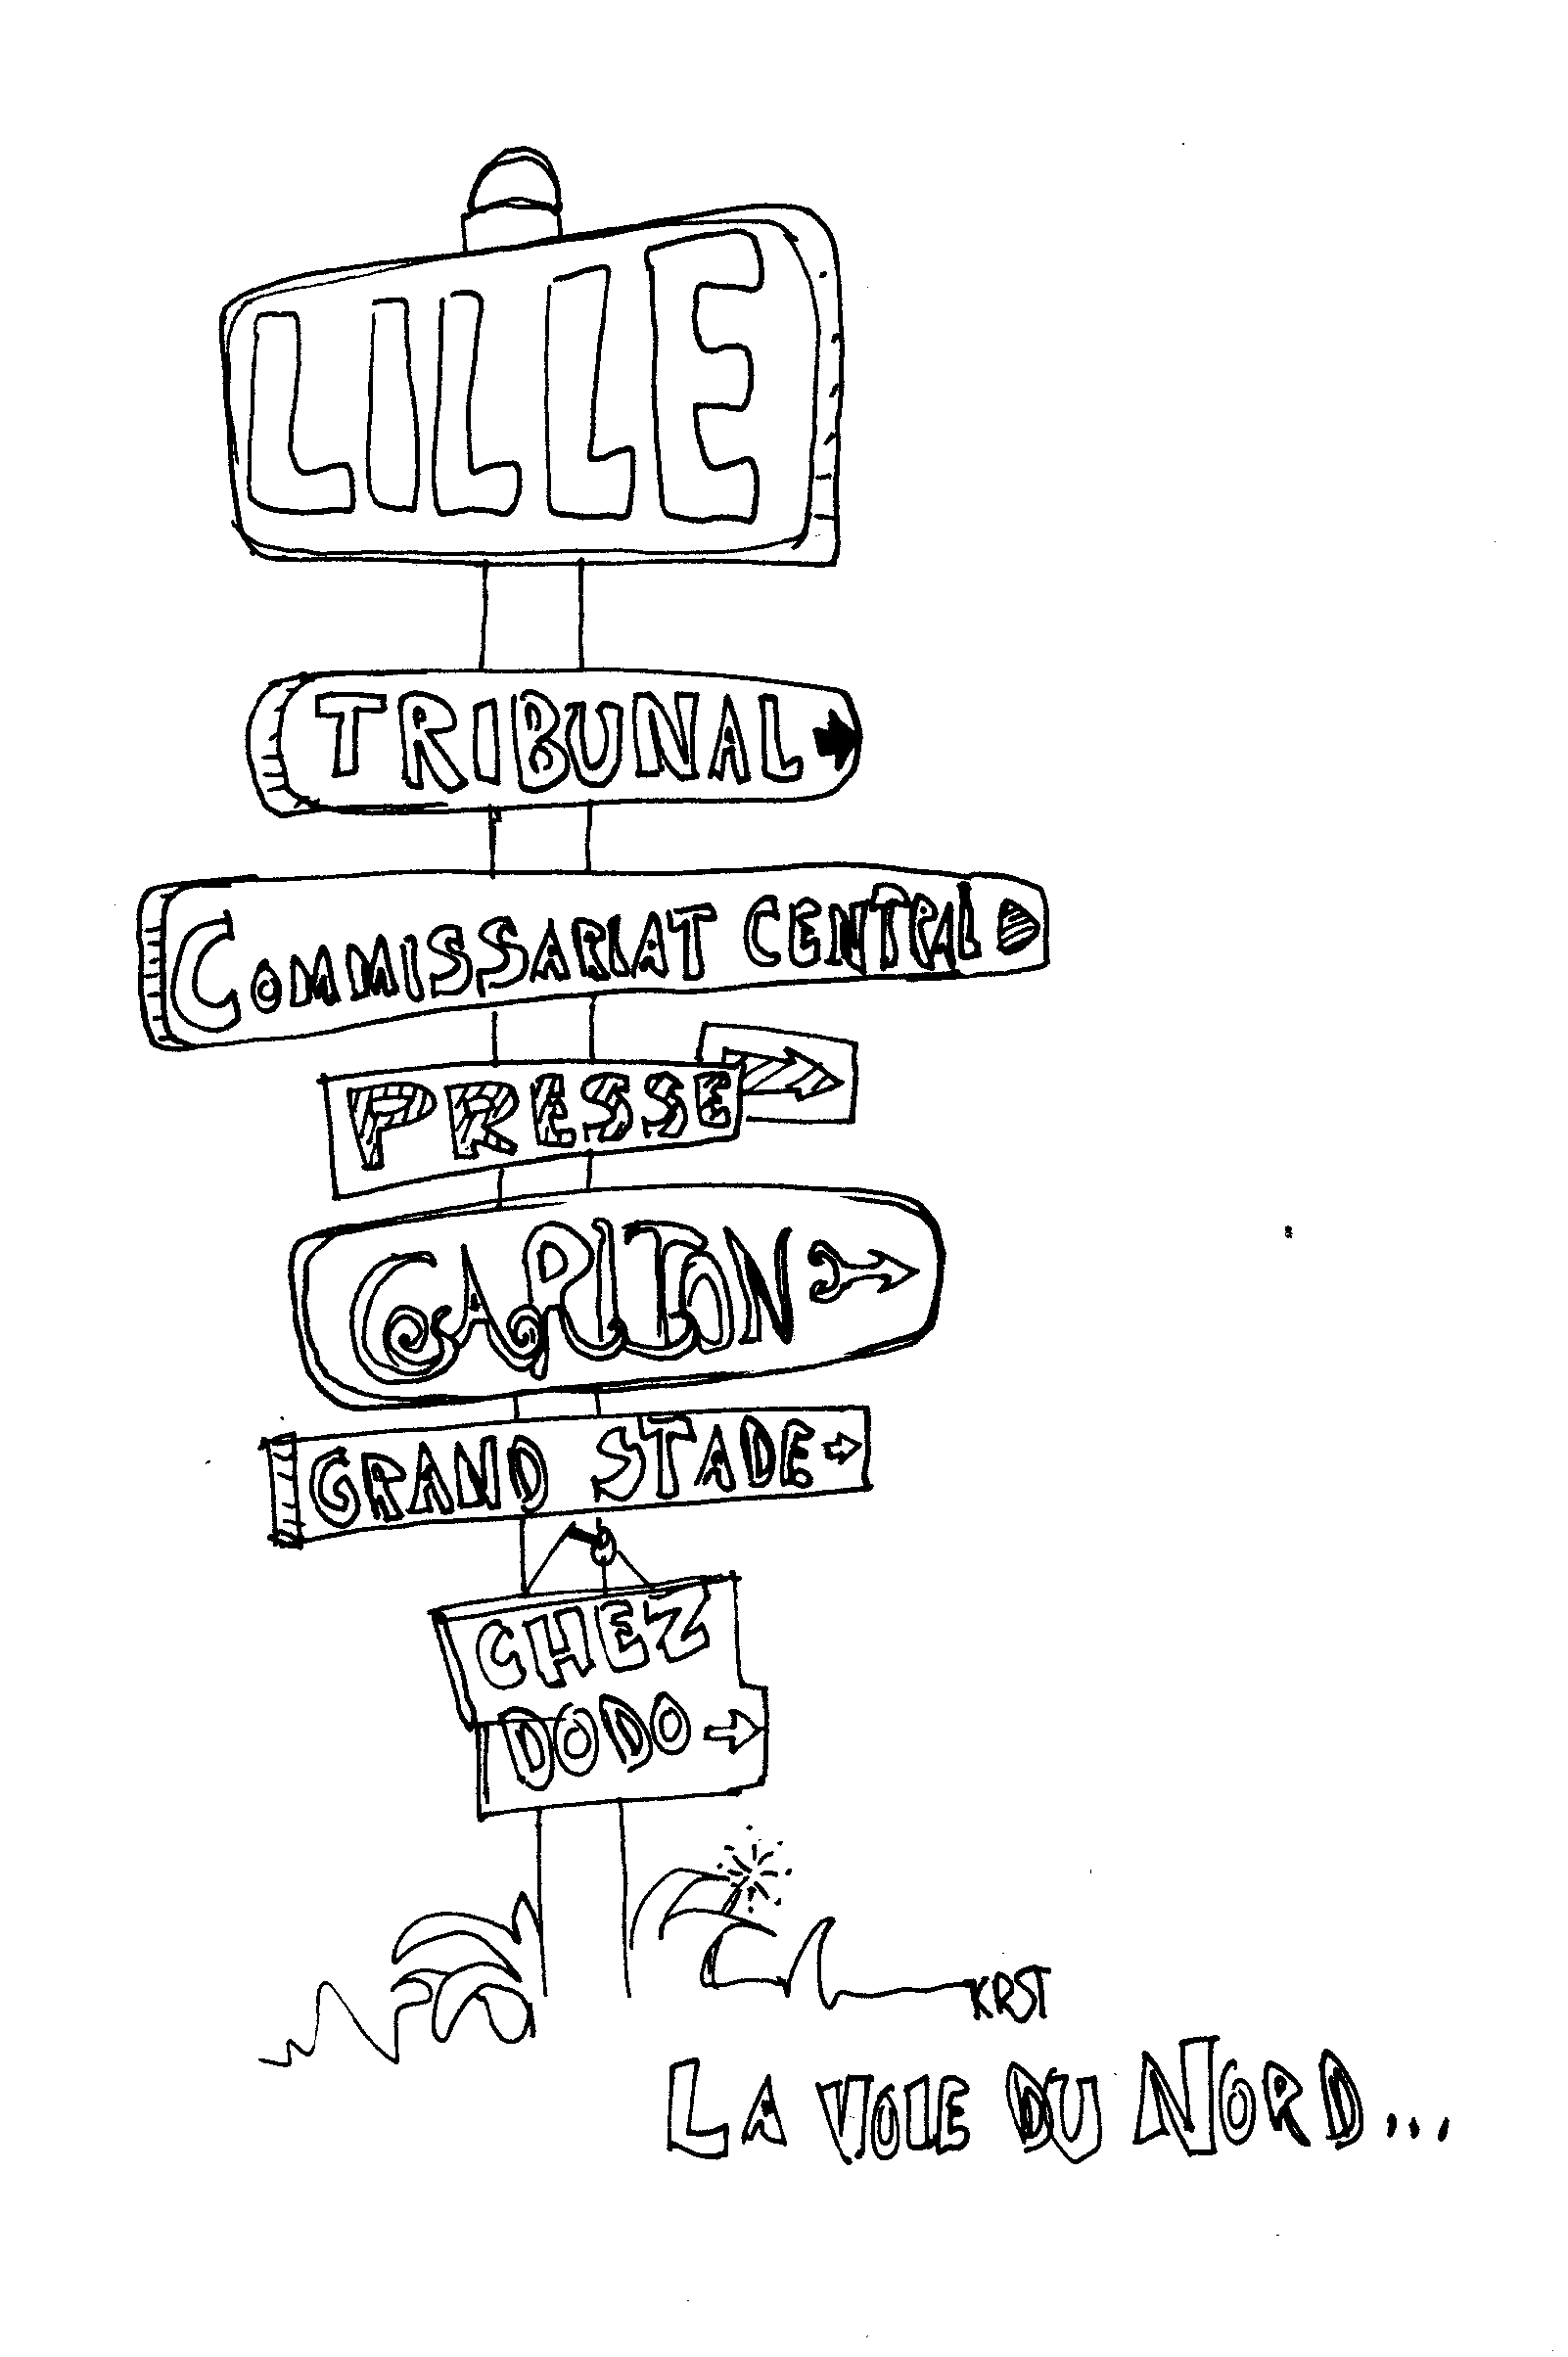 LILLE
TRIBUNAL
COMMISSARIAT CENTRAL
PRESSE
CAPITON
GRAND STADE
CHEZ
DODO
KRST
LA VOIE DU NORD...